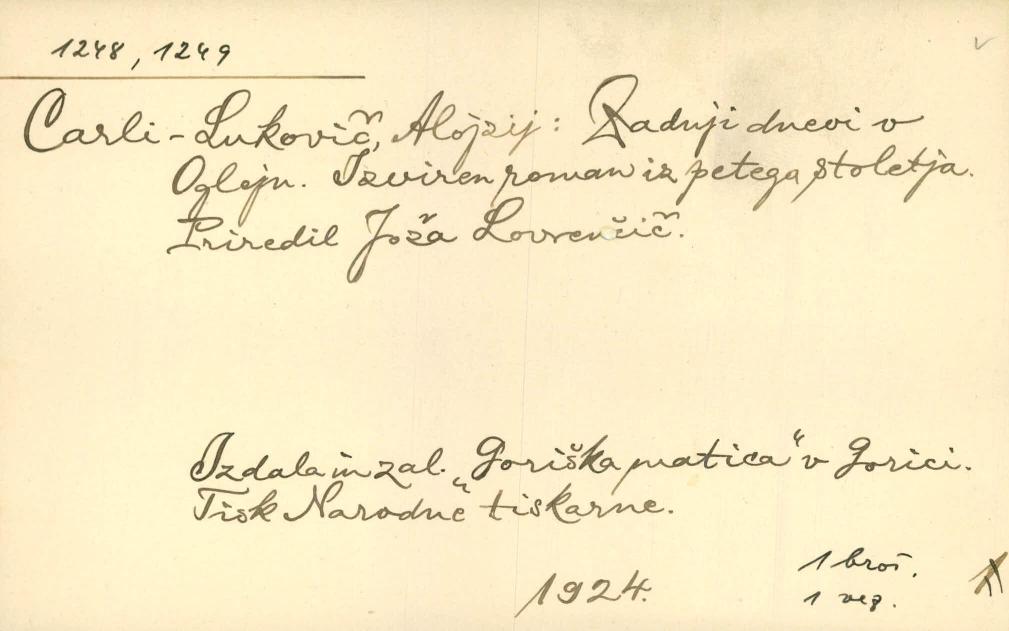 1248, 1249
Carli-Lukovič, Alojzij: Zadnji dnevi v
Ogleju. Izviren roman iz petega stoletja.
Priredil Joža Lovrenčič.
Izdala in zal. „Goriška matica“ v Gorici.
Tisk Narodne tiskarne.
1924.
1 broš.
1 vez.